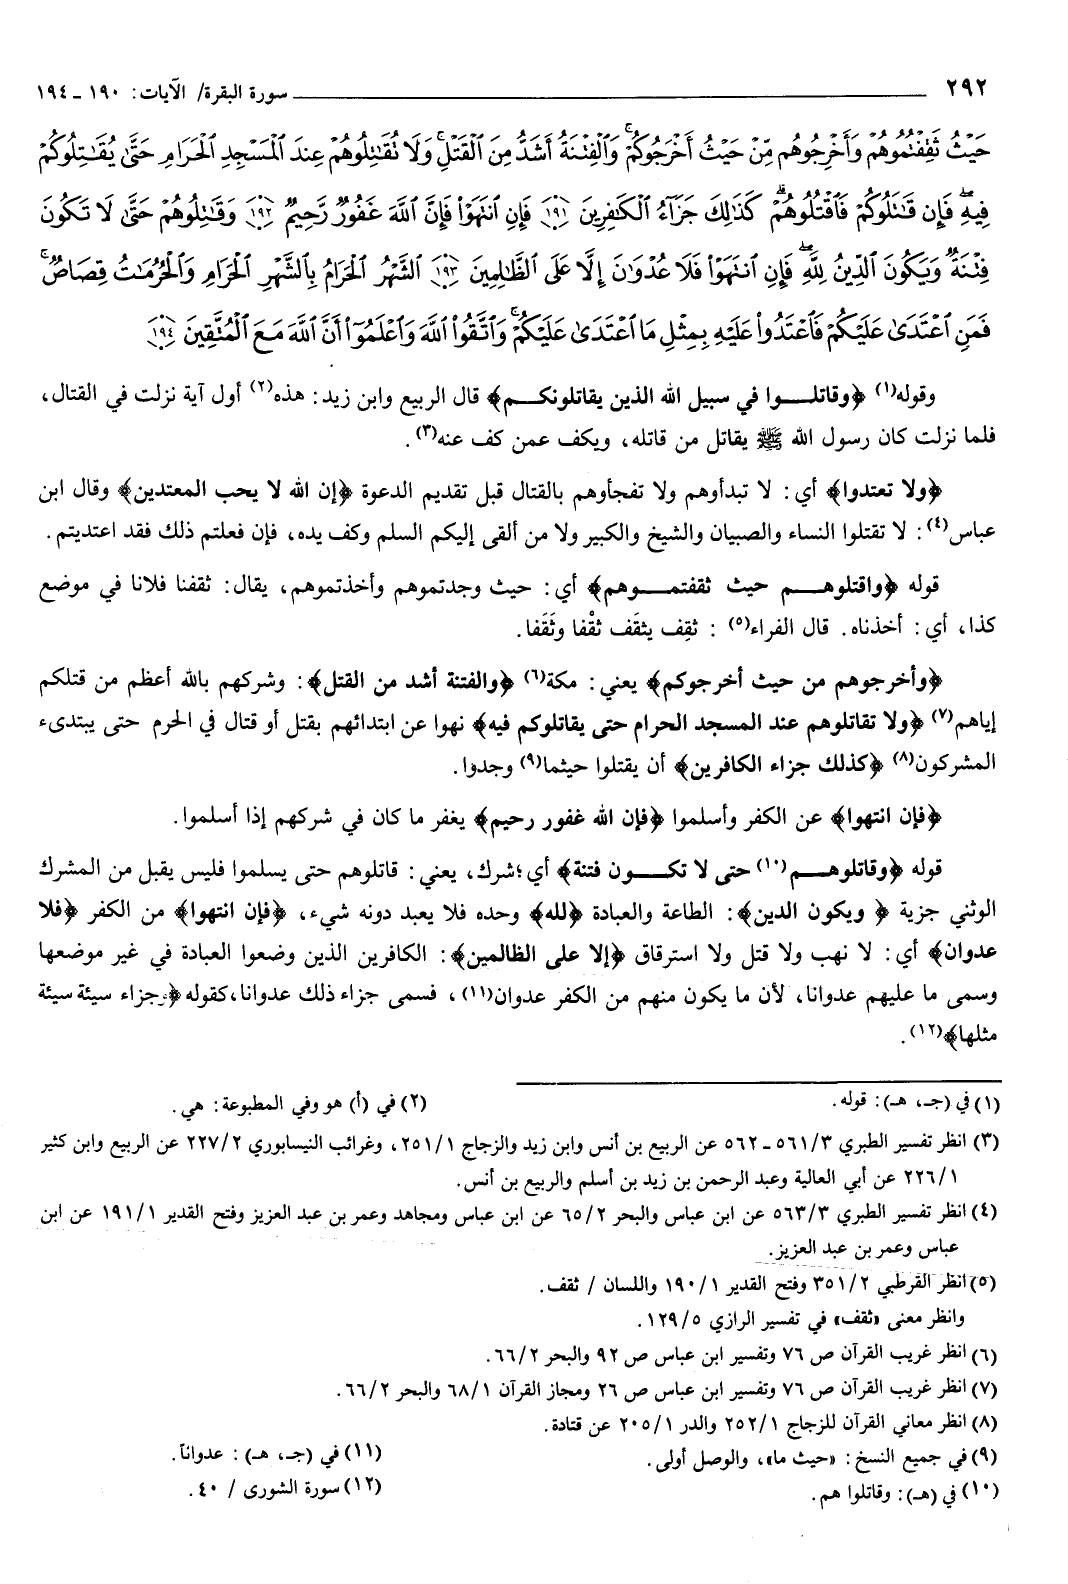 ٢٩٢ سورة البقرة/ الآيات: ١٩٠ ـ ١٩٤
حَيْثُ ثَقِفْتُمُوهُمْ وَأَخْرِجُوهُم مِّنْ حَيْثُ أَخْرَجُوكُمْ ۚ وَالْفِتْنَةُ أَشَدُّ مِنَ الْقَتْلِ ۚ وَلَا تُقَاتِلُوهُمْ عِندَ الْمَسْجِدِ الْحَرَامِ حَتَّىٰ يُقَاتِلُوكُمْ
فِيهِ ۖ فَإِن قَاتَلُوكُمْ فَاقْتُلُوهُمْ ۗ كَذَٰلِكَ جَزَاءُ الْكَافِرِينَ ١٩١ فَإِنِ انتَهَوْا فَإِنَّ اللَّهَ غَفُورٌ رَّحِيمٌ ١٩٢ وَقَاتِلُوهُمْ حَتَّىٰ لَا تَكُونَ
فِتْنَةٌ وَيَكُونَ الدِّينُ لِلَّهِ ۖ فَإِنِ انتَهَوْا فَلَا عُدْوَانَ إِلَّا عَلَى الظَّالِمِينَ ١٩٣ الشَّهْرُ الْحَرَامُ بِالشَّهْرِ الْحَرَامِ وَالْحُرُمَاتُ قِصَاصٌ ۚ
فَمَنِ اعْتَدَىٰ عَلَيْكُمْ فَاعْتَدُوا عَلَيْهِ بِمِثْلِ مَا اعْتَدَىٰ عَلَيْكُمْ ۚ وَاتَّقُوا اللَّهَ وَاعْلَمُوا أَنَّ اللَّهَ مَعَ الْمُتَّقِينَ ١٩٤
وقوله(١) ﴿وقاتلـــوا في سبيل الله الذين يقاتلونكـم﴾ قال الربيع وابن زيد: هذه(٢) أول آية نزلت في القتال،
فلما نزلت كان رسول الله ﷺ يقاتل من قاتله، ويكف عمن كف عنه(٣).
﴿ولا تعتدوا﴾ أي: لا تبدأوهم ولا تفجأوهم بالقتال قبل تقديم الدعوة ﴿إن الله لا يحب المعتدين﴾ وقال ابن
عباس(٤): لا تقتلوا النساء والصبيان والشيخ والكبير ولا من ألقى إليكم السلم وكف يده، فإن فعلتم ذلك فقد اعتديتم.
قوله ﴿واقتلوهـــم حيث ثقفتمـــوهم﴾ أي: حيث وجدتموهم وأخذتموهم، يقال: ثقفنا فلانا في موضع
كذا، أي: أخذناه. قال الفراء(٥) : ثقِف يثقَف ثقْفا وثَقَفا.
﴿وأخرجوهم من حيث أخرجوكم﴾ يعني: مكة(٦) ﴿والفتنة أشد من القتل﴾: وشركهم بالله أعظم من قتلكم
إياهم(٧) ﴿ولا تقاتلوهم عند المسجد الحرام حتى يقاتلوكم فيه﴾ نهوا عن ابتدائهم بقتل أو قتال في الحرم حتى يبتدىء
المشركون(٨) ﴿كذلك جزاء الكافرين﴾ أن يقتلوا حيثما(٩) وجدوا.
﴿فإن انتهوا﴾ عن الكفر وأسلموا ﴿فإن الله غفور رحيم﴾ يغفر ما كان في شركهم إذا أسلموا.
قوله ﴿وقاتلوهـــم(١٠) حتى لا تكـــون فتنة﴾ أي؛شرك، يعني: قاتلوهم حتى يسلموا فليس يقبل من المشرك
الوثني جزية ﴿ ويكون الدين﴾: الطاعة والعبادة ﴿لله﴾ وحده فلا يعبد دونه شيء، ﴿فإن انتهوا﴾ من الكفر ﴿فلا
عدوان﴾ أي: لا نهب ولا قتل ولا استرقاق ﴿إلا على الظالمين﴾: الكافرين الذين وضعوا العبادة في غير موضعها
وسمى ما عليهم عدوانا، لأن ما يكون منهم من الكفر عدوان(١١)، فسمى جزاء ذلك عدوانا،كقوله ﴿وجزاء سيئة سيئة
مثلها﴾(١٢).
(١) في (جـ، هـ): قوله. (٢) في (أ) هو وفي المطبوعة: هي.
(٣) انظر تفسير الطبري ٥٦١/٣ ـ ٥٦٢ عن الربيع بن أنس وابن زيد والزجاج ٢٥١/١، وغرائب النيسابوري ٢٢٧/٢ عن الربيع وابن كثير
٢٢٦/١ عن أبي العالية وعبد الرحمن بن زيد بن أسلم والربيع بن أنس.
(٤) انظر تفسير الطبري ٥٦٣/٣ عن ابن عباس والبحر ٦٥/٢ عن ابن عباس ومجاهد وعمر بن عبد العزيز وفتح القدير ١٩١/١ عن ابن
عباس وعمر بن عبد العزيز.
(٥) انظر القرطبي ٣٥١/٢ وفتح القدير ١٩٠/١ واللسان / ثقف.
وانظر معنى «ثقف» في تفسير الرازي ١٢٩/٥.
(٦) انظر غريب القرآن ص ٧٦ وتفسير ابن عباس ص ٩٢ والبحر ٦٦/٢.
(٧) انظر غريب القرآن ص ٧٦ وتفسير ابن عباس ص ٢٦ ومجاز القرآن ٦٨/١ والبحر ٦٦/٢.
(٨) انظر معاني القرآن للزجاج ٢٥٢/١ والدر ٢٠٥/١ عن قتادة.
(٩) في جميع النسخ: «حيث ما»، والوصل أولى. (١١) في (جـ، هـ) : عدواناً.
(١٠) في (هـ): وقاتلوا هم. (١٢) سورة الشورى / ٤٠.